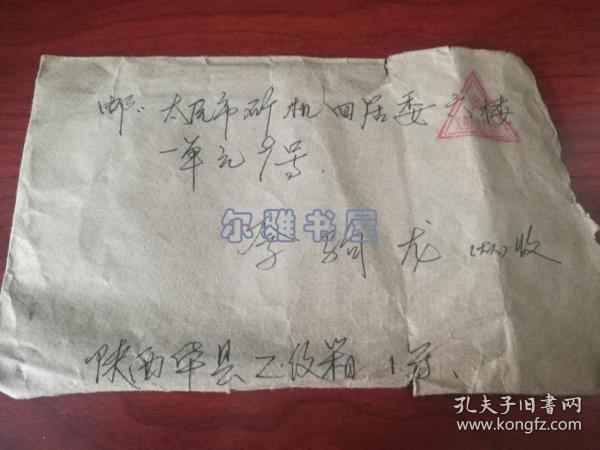 邮：太原市矿机四居委六楼
一单元9号.
尔雅书屋
李 龙 收
陕西华县 信箱 1号.
孔夫子旧书网
www.kongfz.com